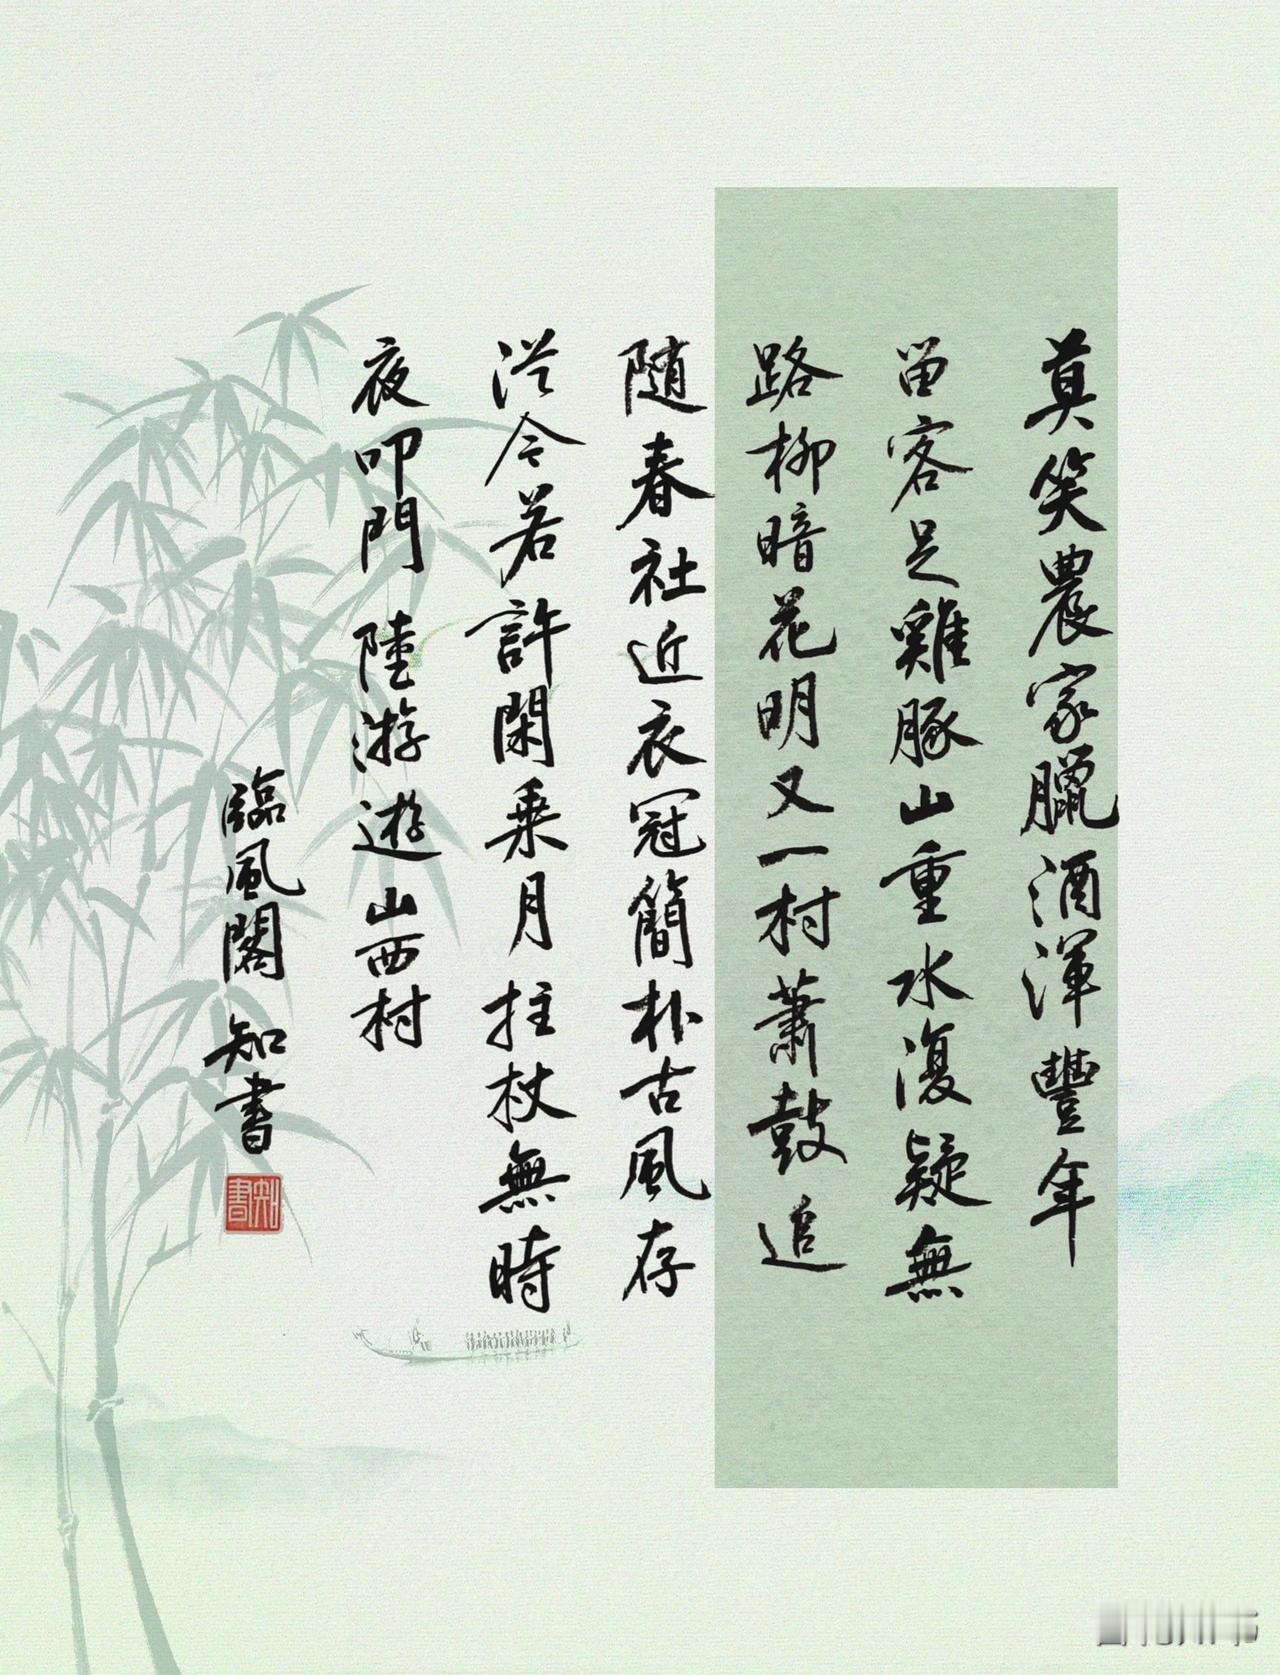 莫笑農家臘酒渾豐年
留客足雞豚山重水復疑無
路柳暗花明又一村蕭鼓追
隨春社近衣冠簡朴古風存
從今若許閑乗月拄杖無時
夜叩門 陸游 遊山西村
臨風閣 知書
知書